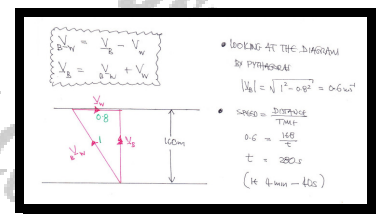 BVW = VB − VW
VB = BVW + VW
VW
0.8
1
BVW
VB
160m
• LOOKING AT THE DIAGRAM
BY PYTHAGORAS
|VB| = √1²−0.8² = 0.6 ms⁻¹
• SPEED = DISTANCE / TIME
0.6 = 168 / t
t = 280s
(IE 4 min − 40s)